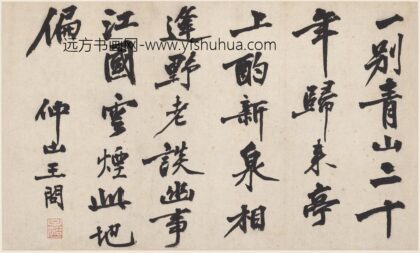 一别青山二十
年歸来亭
上酌新泉相
逢野老談幽事
江國雲煙此地
偏
仲山王問
远方书画网--www.yishuhua.com